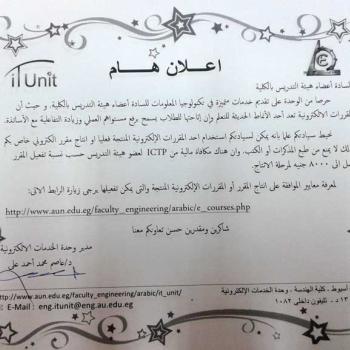 iT Unit
اعـلان هـام
السادة أعضاء هيئة التدريس بالكلية
حرصا من الوحدة على تقديم خدمات متميزة في تكنولوجيا المعلومات للسادة أعضاء هيئة التدريس بالكلية. و حيث أن
المقررات الالكترونية تعد أحد الأنماط الحديثة للتعلم وإن إتاحتها للطلاب يسمح برفع مستواهم العملي وزيادة التفاعلية مع الأساتذة.
نحيط سيادتكم علما بانه يمكن لسيادتكم استخدام احد المقررات الالكترونية المنتجة فعليا او انتاج مقرر الكتروني خاص بكم
ذلك لا يمنع من طبع المذكرات أو الكتب. وان هناك مكافاة مالية من ICTP لعضو هيئة التدريس حسب نسبة تفعيل المقرر
الى ٨٠٠٠ جنيه لمرحلة الانتاج.
لمعرفة معايير الموافقة على انتاج المقرر أو المقررات الإلكترونية المنتجة والتي يمكن تفعيلها يرجى زيارة الرابط الاتي:
http://www.aun.edu.eg/faculty_engineering/arabic/e_courses.php
شاكرين ومقدرين حسن تعاونكم معنا
مدير وحدة الخدمات الالكترونية
د/عاصم محمد أحمد على
أسيوط - كلية الهندسة - وحدة الخدمات الإلكترونية
تليفون داخلى ١٠٨٢
http://www.aun.edu.eg/faculty_engineering/arabic/it_unit/
E-Mail : eng.itunit@eng.au.edu.eg